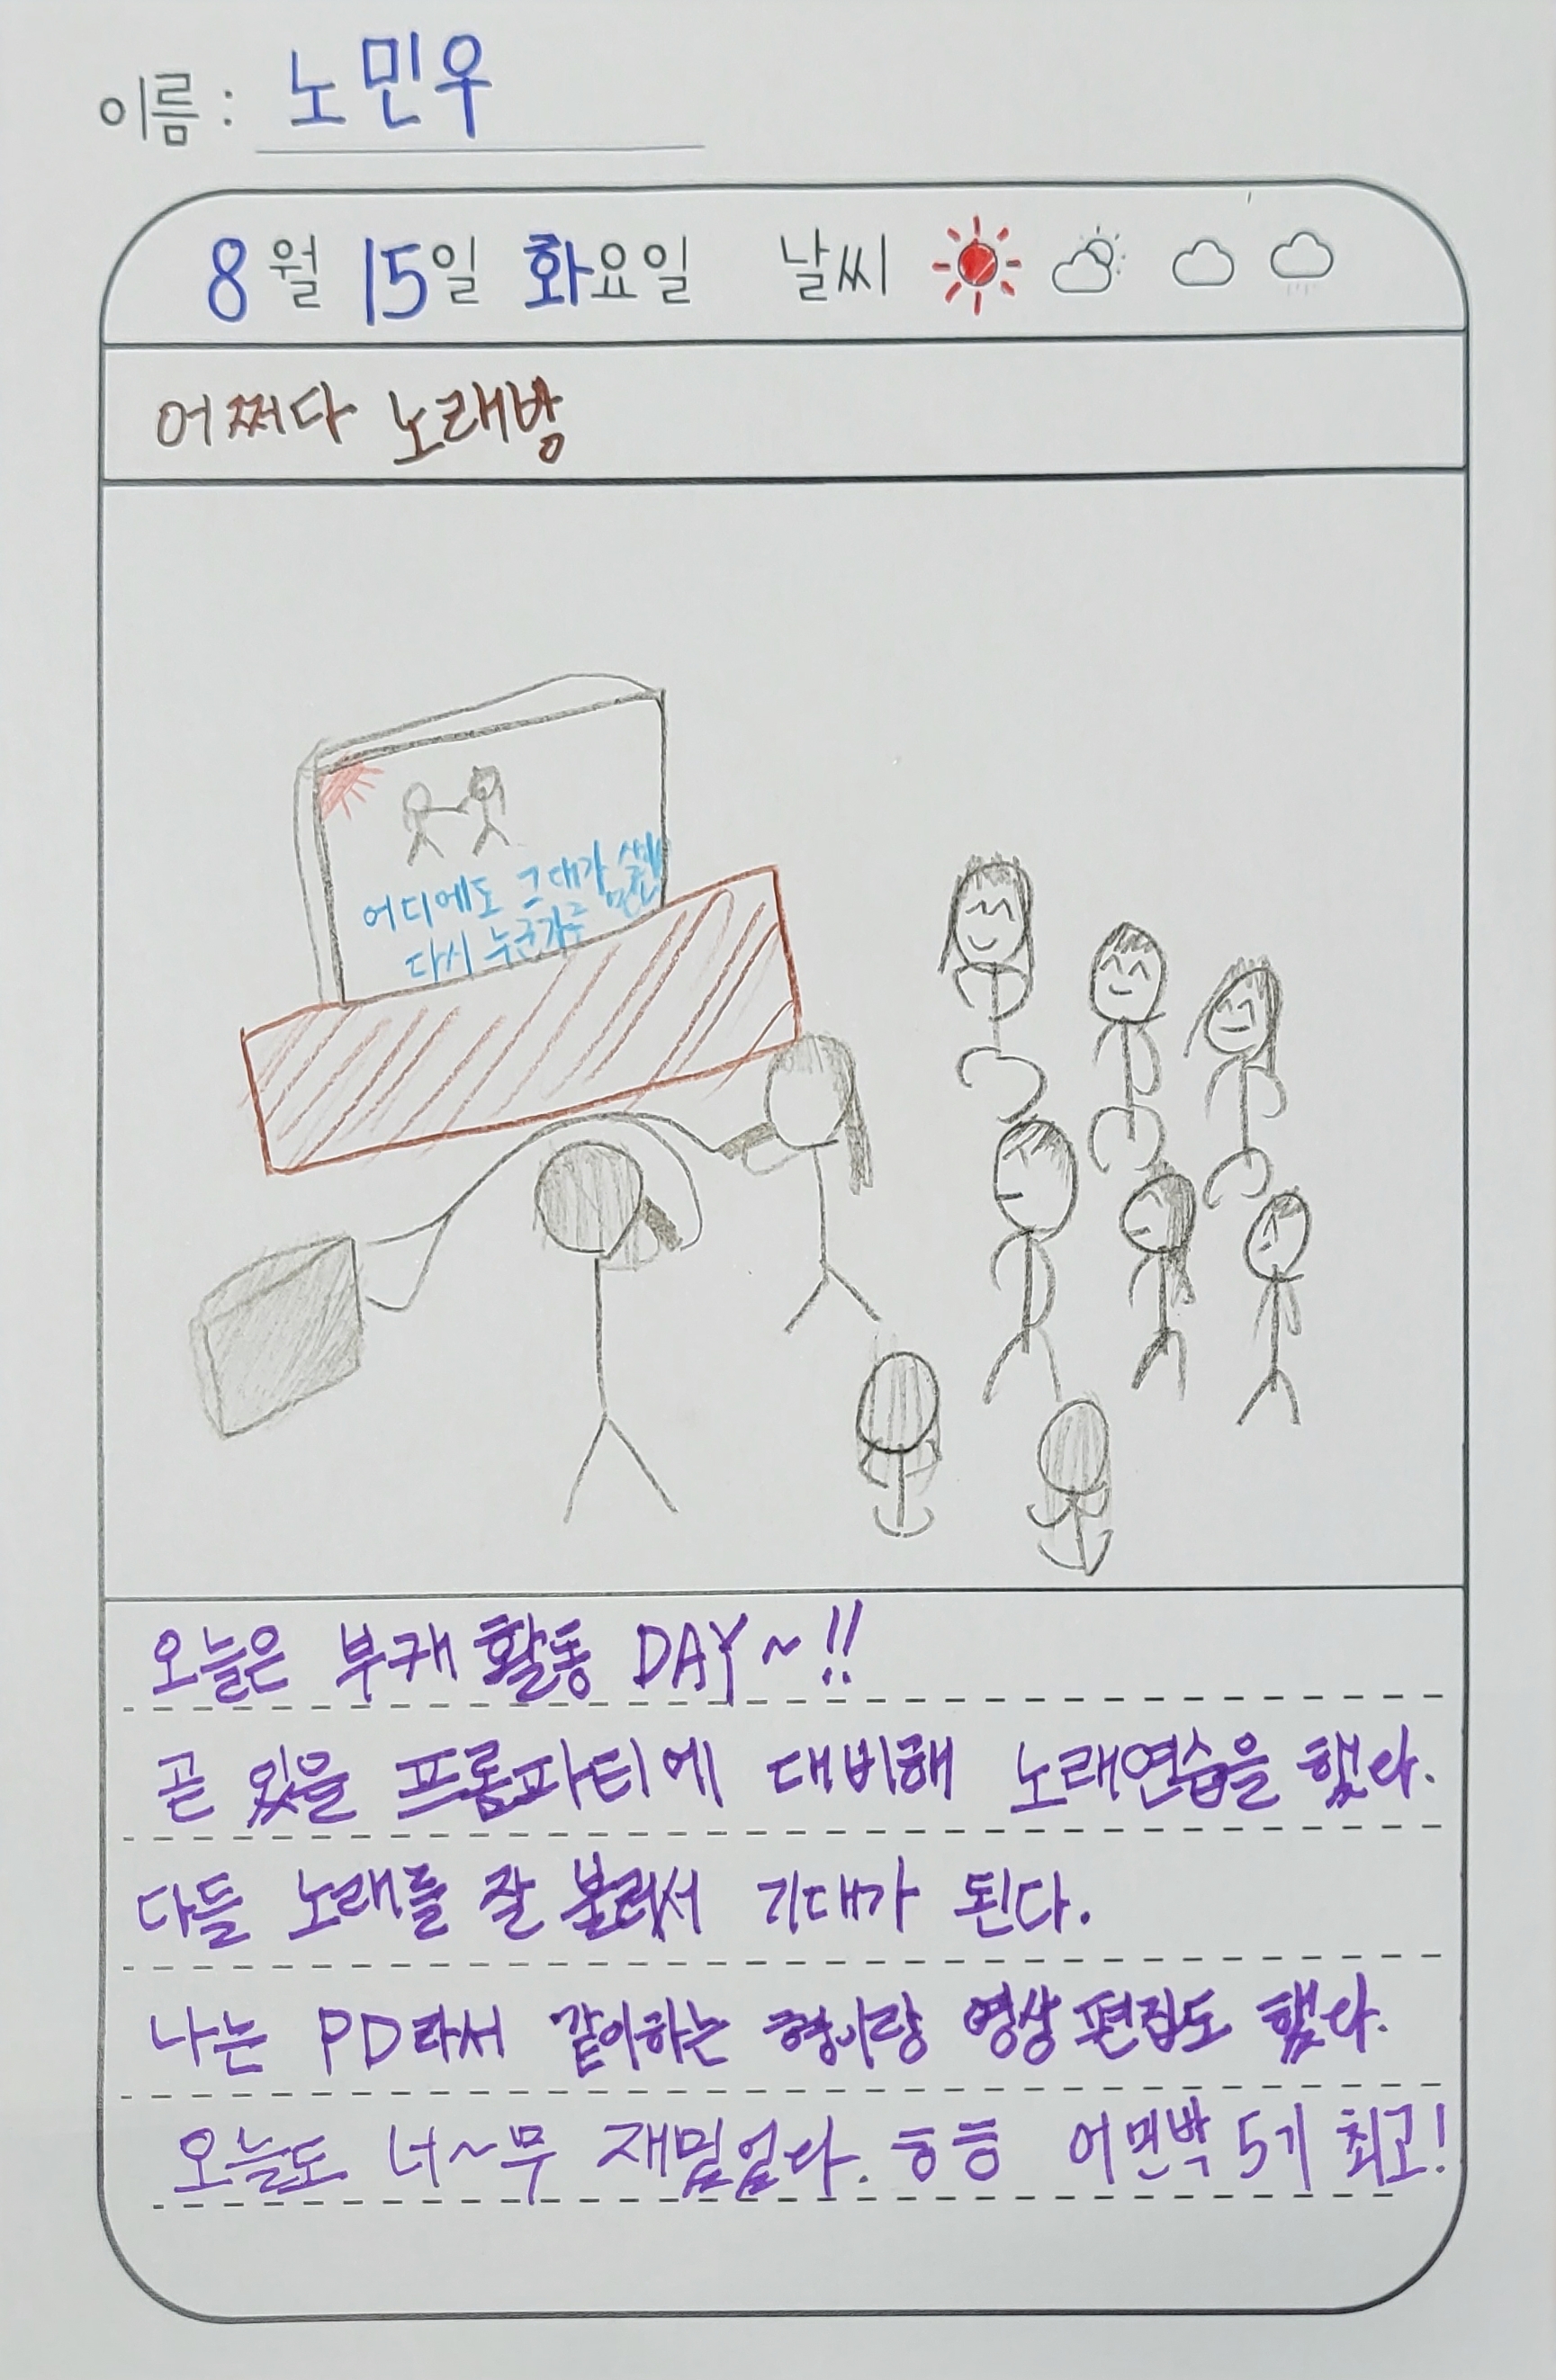 이름 : 노민우
8월 15일 화요일 날씨
어쩌다 노래방
어디에도 그대가
다시 누군가를
오늘은 부캐 활동 DAY~!!
곧 있을 프롬파티에 대비해 노래연습을 했다.
다들 노래를 잘 불러서 기대가 된다.
나는 PD라서 같이하는 형이랑 영상 편집도 했다.
오늘도 너~무 재밌었다. ㅎㅎ 어쩐박 5기 최고!